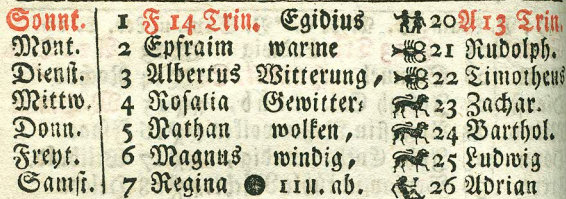 Sonnt. 1 F 14 Trin. Egidius 20 A 13 Trin.
Mont. 2 Epfraim warme 21 Rudolph.
Dienst. 3 Albertus Witterung, 22 Timotheus
Mittw. 4 Rosalia Gewitter⸗ 23 Zachar.
Donn. 5 Nathan wolken, 24 Barthol.
Freyt. 6 Magnus windig, 25 Ludwig
Samst. 7 Regina 11u. ab. 26 Adrian